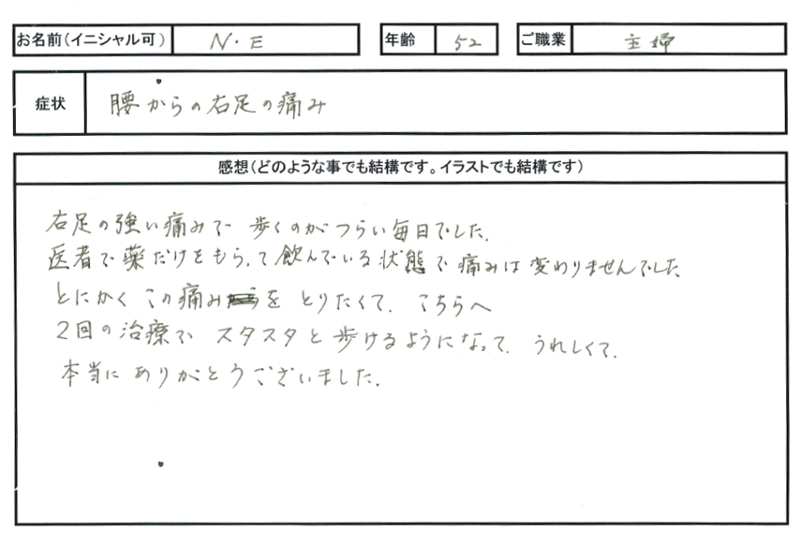 お名前(イニシャル可) N・E 年齢 52 ご職業 主婦
症状 腰からの右足の痛み
感想(どのような事でも結構です。イラストでも結構です)
右足の強い痛みで 歩くのがつらい毎日でした。
医者で薬だけをもらって飲んでいる状態で痛みは変わりませんでした
とにかく この痛みを とりたくて、こちらへ
2回の治療で スタスタと歩けるようになって、うれしくて、
本当に ありがとうございました。